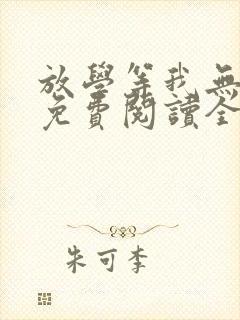 放學等我無
免費閱讀全
朱可李